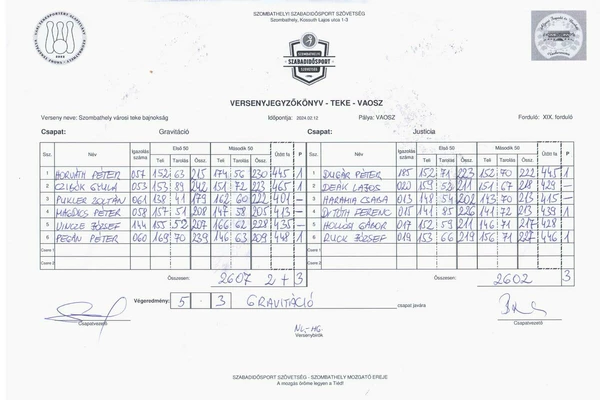 SZOMBATHELYI SZABADIDŐSPORT SZÖVETSÉG
Szombathely, Kossuth Lajos utca 1-3
SZOMBATHELYI
SZABADIDŐSPORT
SZÖVETSÉG
VERSENYJEGYZŐKÖNYV - TEKE - VAOSZ
Verseny neve: Szombathely városi teke bajnokság Időpontja: 2024.02.12 Pálya: VAOSZ Forduló: XIX. forduló
Csapat: Gravitáció Csapat: Justícia
Ssz. Név Igazolás száma Első 50 Második 50 Ütött fa P Ssz. Név Igazolás száma Első 50 Második 50 Ütött fa P
Teli Tarolás Össz. Teli Tarolás Össz. Teli Tarolás Össz. Teli Tarolás Össz.
1 HORVÁTH PÉTER 057 152 63 215 174 56 230 445 1 1 SUGÁR PÉTER 185 152 71 223 152 70 222 445 1
2 CZIBÓK GYULA 053 153 89 242 151 72 223 465 1 2 DEÁK LAJOS 020 159 52 211 151 67 218 429 —
3 PUKLER ZOLTÁN 061 138 41 179 162 60 222 401 — 3 CSABA 013 148 54 202 143 70 213 415 —
4 PÉTER 058 157 51 208 147 58 205 413 — 4 FERENC 015 141 85 226 141 72 213 439 1
5 VINCZE JÓZSEF 144 155 52 207 166 62 228 435 — 5 HOLLÓSI GÁBOR 017 152 59 211 146 71 217 428 1
6 PÉTER 060 169 70 239 146 63 209 448 1 6 RUCK JÓZSEF 019 153 66 219 156 71 227 446 1
Csere 1 Csere 1
Csere 2 Csere 2
Összesen: 2607 2+3 Összesen: 2602 3
Végeredmény: 5 - 3 GRAVITÁCIÓ csapat javára
Csapatvezető Csapatvezető
NL-HG.
Versenybírók
SZABADIDŐSPORT SZÖVETSÉG - SZOMBATHELY MOZGATÓ EREJE
A mozgás öröme legyen a Tiéd!